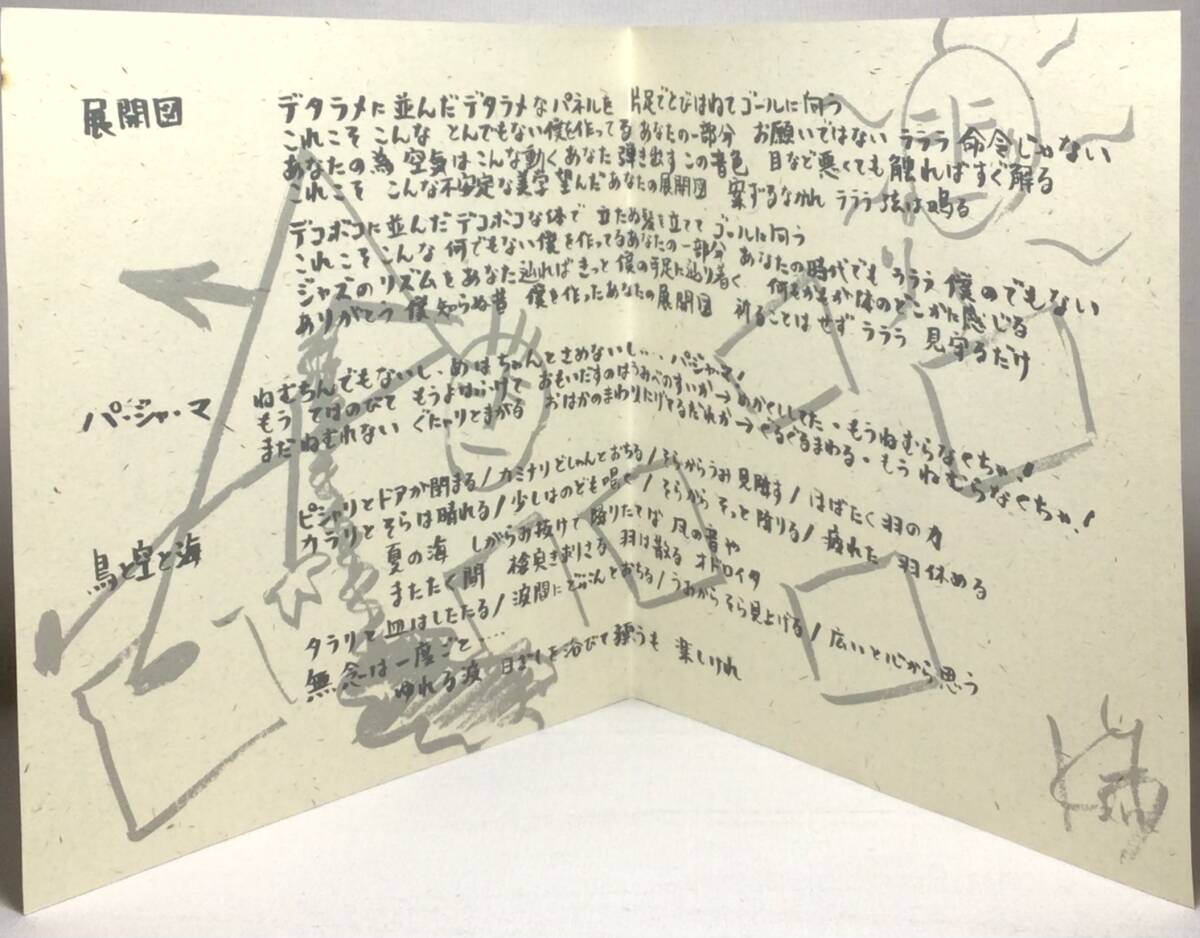 展開図
デタラメに並んだデタラメなパネルを 片足でとびはねてゴールに向う
これこそ こんな とんでもない僕を作ってる あなたの一部分 お願いではない ラララ 命令じゃない
あなたの為 空気はこんな動く あなた 弾き出す この音色 目など悪くても 触ればすぐ解る
これこそ こんな不安定な美学 望んだ あなたの展開図 案ずるなかれ ラララ 弦は鳴る
デコボコに並んだデコボコな体で 立ため髪を立てて ゴールに向う
これこそ こんな 何でもない 僕を作ってるあなたの一部分 あなたの時代でも ラララ 僕のでもない
ジャズのリズムを あなた辿れば きっと 僕の手足に辿り着く 何もかもが体のどこかに感じる
ありがとう 僕 知らぬ昔 僕を作ったあなたの展開図 祈ることはせず ラララ 見守るだけ
パ・ジャ・マ
ねむちんでもないし、めはちゃんとさめないし・・・パ・ジャ・マ!
もう てはのびて もうよはふけて おもいだすのはうみべのすいか→めかくししてた・もうねむらなくちゃ!
まだ ねむれない ぐにゃりとまがる おはかのまわりにげてるだれか→ぐるぐるまわる・もう ねむらなくちゃ!
鳥と空と海
ピシャリとドアが閉まる/カミナリどしゃんとおちる/そらからうみ見降す/はばたく羽の力
カラリとそらは晴れる/少しはのども唱く/そらから そっと降りる/疲れた 羽休める
夏の海 しがらみ抜けて 降りたてば 風の音や
またたく間 検臭きおりさる 羽は散る オドロイタ
タラリと血はしたたる/波間にどぶんとおちる/うみからそら見上げる/広いと心から思う
無念は一度ごと・・・・
ゆれる波 日ざしを浴びて 漂うも 楽しけれ